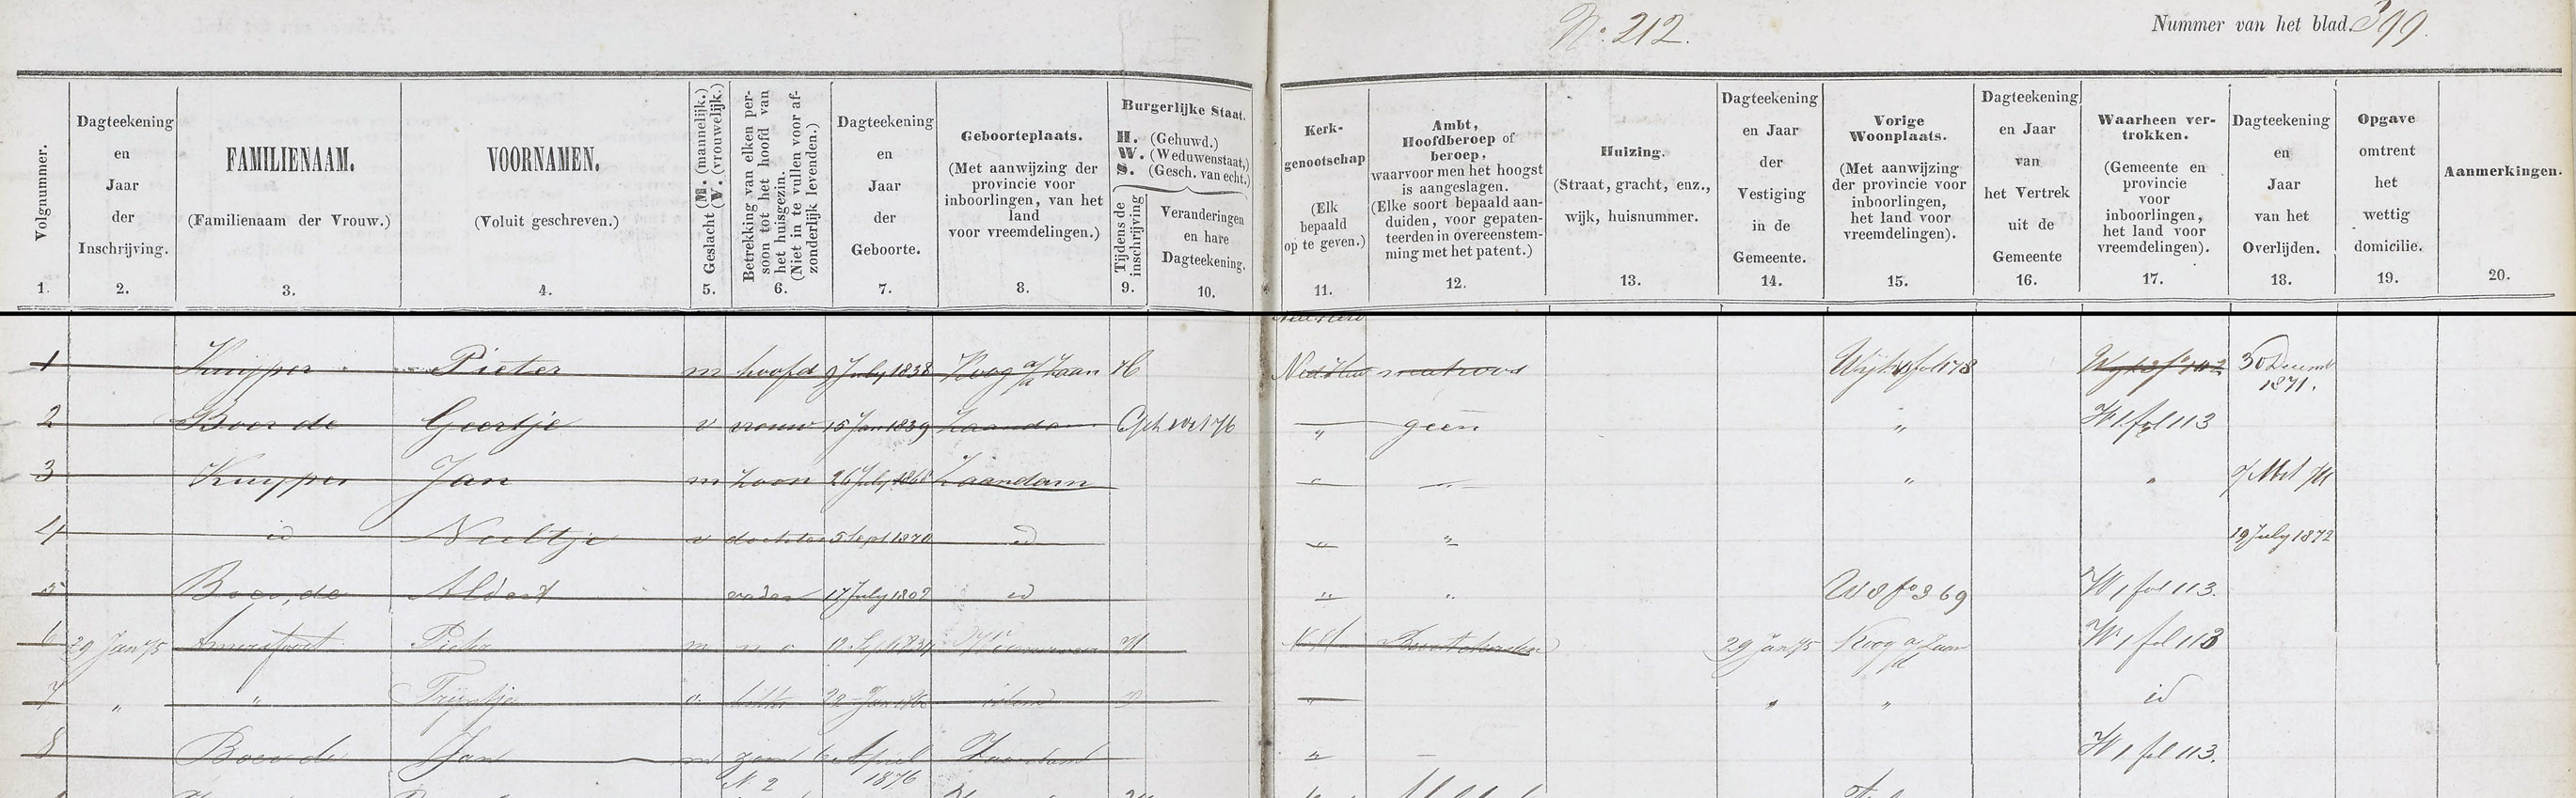 N.º 212.
Nummer van het blad. 399.
Volgnummer. 1.
Dagteekening en Jaar der Inschrijving. 2.
FAMILIENAAM. (Familienaam der Vrouw.) 3.
VOORNAMEN. (Voluit geschreven.) 4.
Geslacht (M. (mannelijk.) (V. (vrouwelijk.) 5.
Betrekking van elken persoon tot het hoofd van het huisgezin. (Niet in te vullen voor afzonderlijk levenden.) 6.
Dagteekening en Jaar der Geboorte. 7.
Geboorteplaats. (Met aanwijzing der provincie voor inboorlingen, van het land voor vreemdelingen.) 8.
Burgerlijke Staat. H. (Gehuwd.) W. (Weduwenstaat,) S. (Gesch. van echt.)
Tijdens de inschrijving 9.
Veranderingen en hare Dagteekening. 10.
Kerkgenootschap (Elk bepaald op te geven.) 11.
Ambt, Hoofdberoep of beroep, waarvoor men het hoogst is aangeslagen. (Elke soort bepaald aanduiden, voor gepatenteerden in overeenstemming met het patent.) 12.
Huizing. (Straat, gracht, enz., wijk, huisnummer. 13.
Dagteekening en Jaar der Vestiging in de Gemeente. 14.
Vorige Woonplaats. (Met aanwijzing der provincie voor inboorlingen, het land voor vreemdelingen). 15.
Dagteekening en Jaar van het Vertrek uit de Gemeente 16.
Waarheen vertrokken. (Gemeente en provincie voor inboorlingen, het land voor vreemdelingen). 17.
Dagteekening en Jaar van het Overlijden. 18.
Opgave omtrent het wettig domicilie. 19.
Aanmerkingen. 20.
1 Kuijper Pieter m hoofd 9 July 1838 Koog a/d Zaan H Ned Her matroos 30 Decemb 1871.
2 Boer de Geertje v vrouw 15 Jan 1839 Zaandam " geen " W 1 fol 113
3 Kuyper Jan m zoon 26 July 1868 Zaandam " " " "
4 id Neeltje v dochter 5 Sept 1870 id " " 19 July 1872
5 Boer, de Aldert vader 17 July 1802 id " " W 8 fo 369 W 1 fol 113.
6 29 Jan 75 Amersfoort Pieter m H N H 29 Jan 75 Koog a/d Zaan W 1 fol 113
7 " " Trijntje " " " id
8 Boer de Jan m zoon 6 April 1876 Zaandam " W 1 fol 113.
N 2